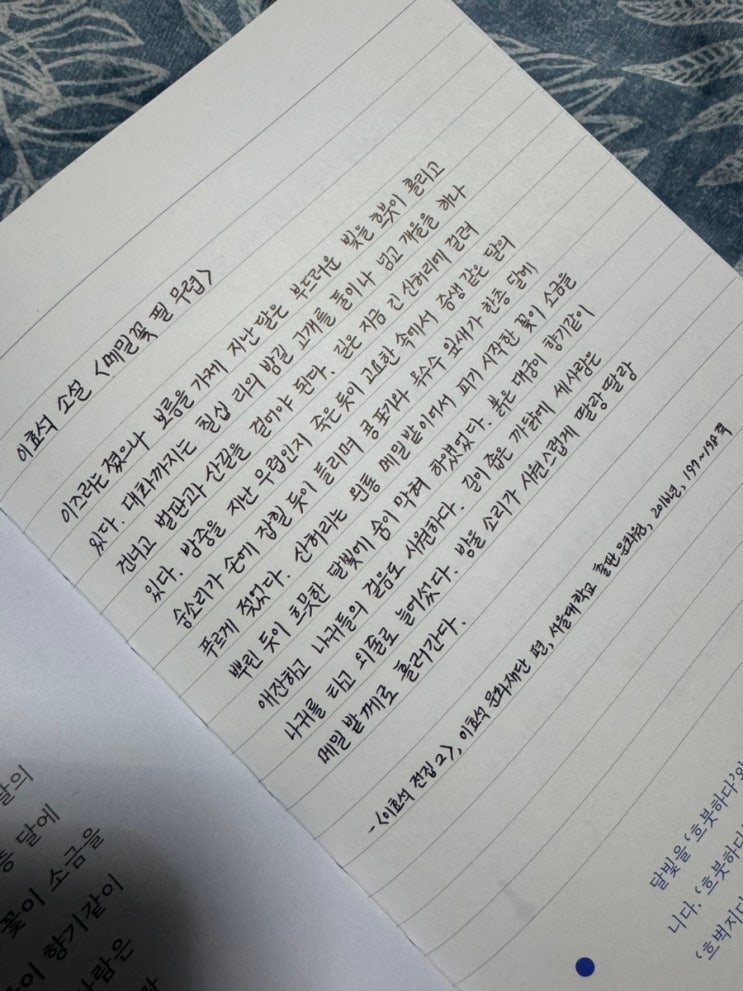 이효석 소설 <메밀꽃 필 무렵>
이즈러는 졌으나 보름을 가제 지난 달은 부드러운 빛을 흐붓이 흘리고
있다. 대화까지는 칠십 리의 밤길 고개를 둘이나 넘고 개울을 하나
건너고 벌판과 산길을 걸어야 된다. 길은 지금 긴 산허리에 걸려
있다. 밤중을 지난 무렵인지 죽은 듯이 고요한 속에서 즘생 같은 달의
숨소리가 손에 잡힐 듯이 들리며 콩포기와 옥수수 잎새가 한층 달에
푸르게 젖었다. 산허리는 왼통 메밀밭이어서 피기 시작한 꽃이 소금을
뿌린 듯이 흐믓한 달빛에 숨이 막혀 하얬었다. 붉은 대궁이 향기같이
애잔하고 나귀들의 걸음도 시원하다. 길이 좁은 까닭에 세 사람은
나귀를 타고 외줄로 늘어섰다. 방울 소리가 시원스럽게 딸랑딸랑
메밀밭께로 흘러간다.
-<이효석 전집 2>, 이효석문화재단 편, 서울대학교 출판문화원, 2016년, 197~198쪽
달빛을 '흐붓하다'와
니다. '흐붓하다
'흐벅지다
달의
층 달에
꽃이 소금을
이 향기같이
사람은